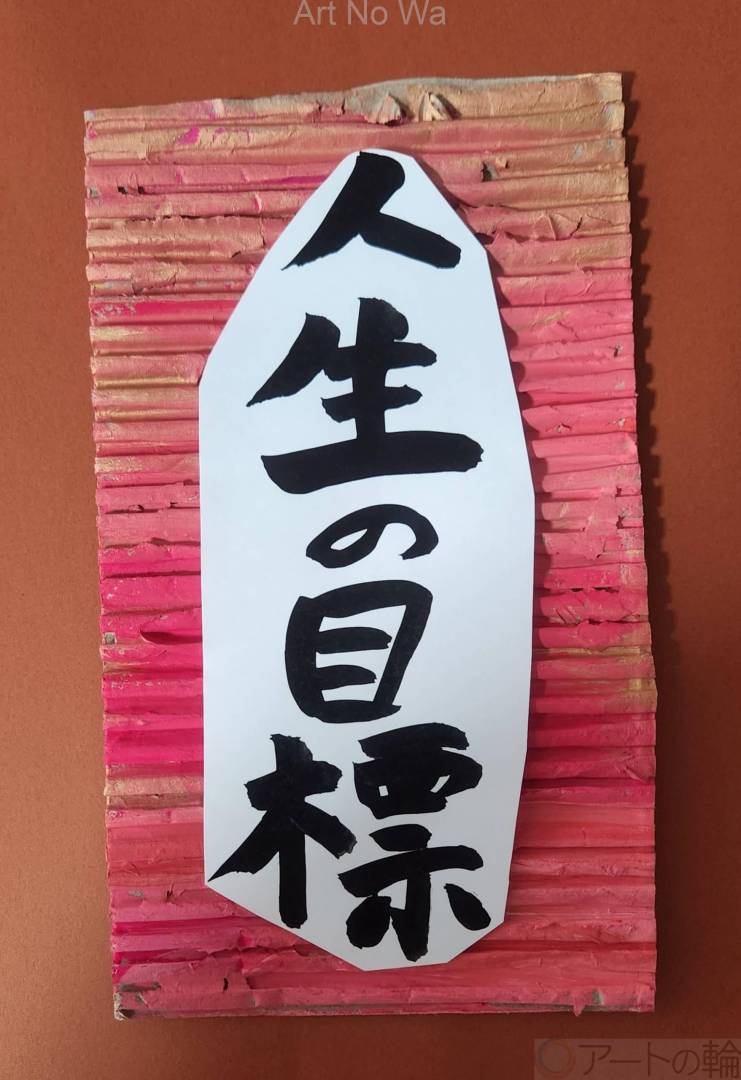 Art No Wa
人生の目標
アートの輪